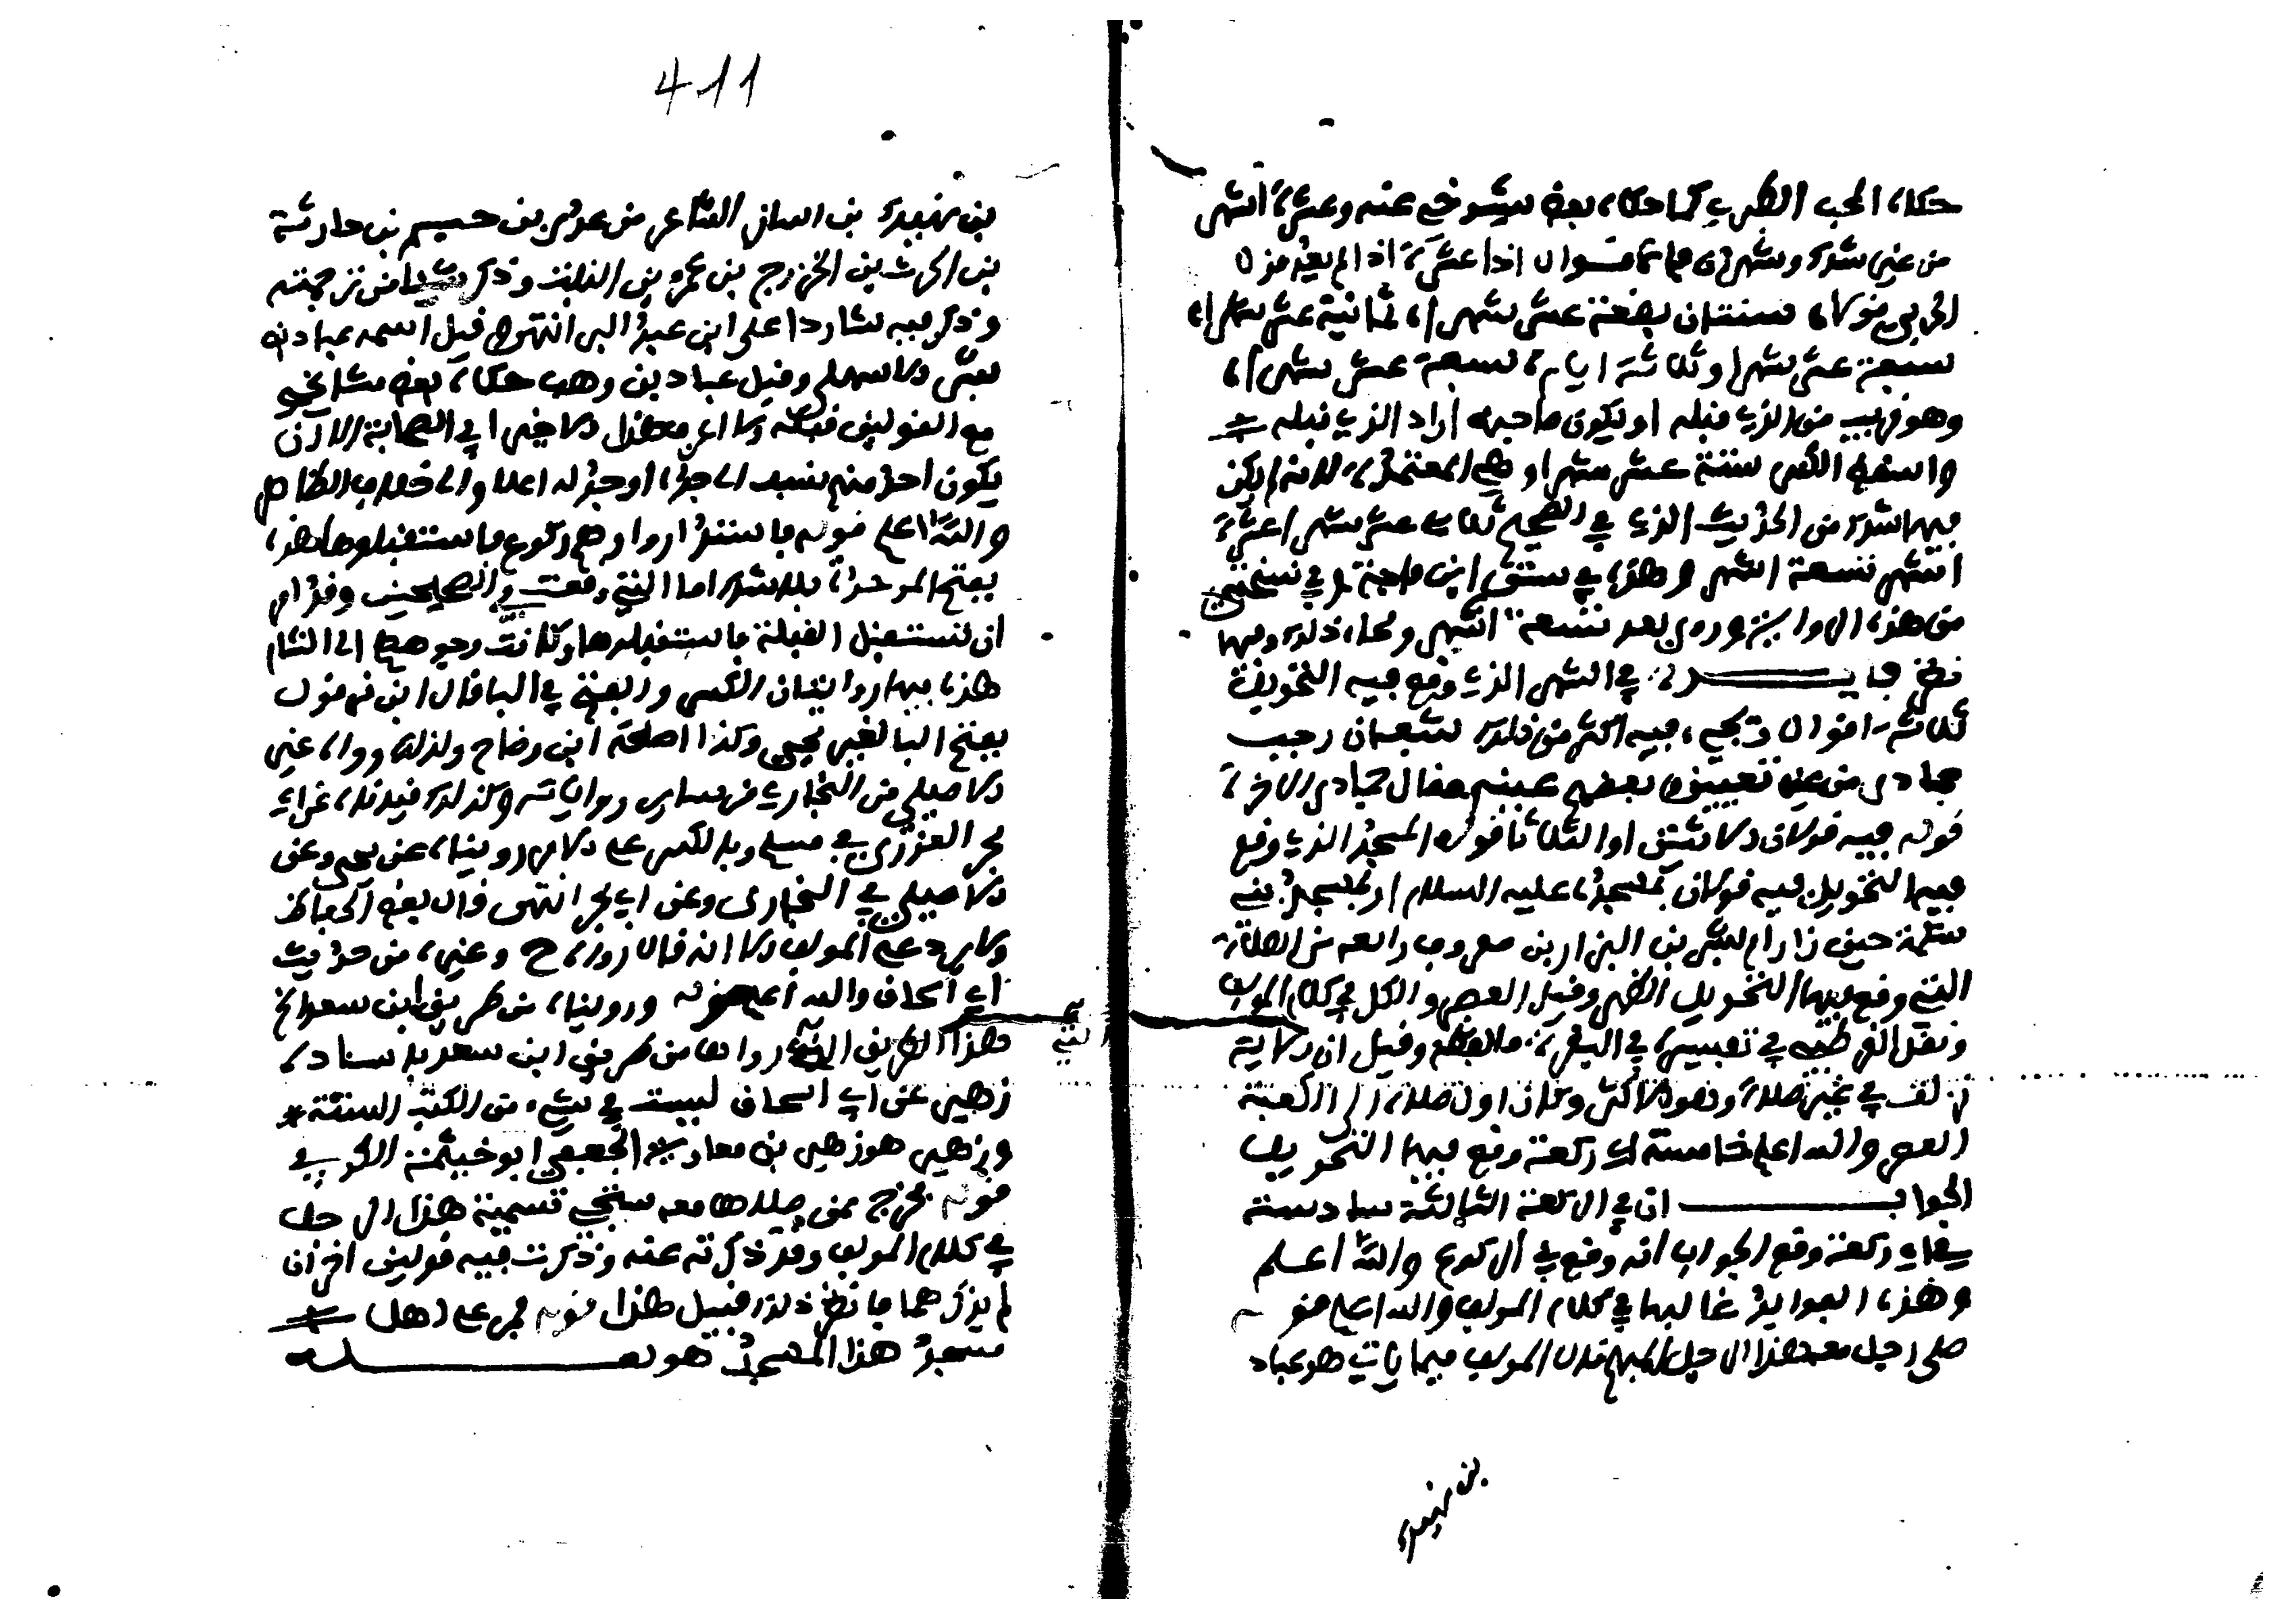 حكاه المحب الطبري كما حكاه بعض شيوخي عنه وعشرة اشهر
من غير شك وشهران فهاتان قولان اذا عشرة اذا لم يعد من
الحربي قولا سنتان بضعة عشر شهرا ثمانية عشر شهرا
سبعة عشر شهرا وثلاثة ايام سبعة عشر شهرا
وهو قريب من الذي قبله او يكون صاحبه اراد الذي قبله
واسقط الكسر ستة عشر شهرا وهي المعتمدة لانه لم يكن
فيها شك من الحديث الذي في الصحيح ثلاثة عشر شهرا عشرة
اشهر تسعة اشهر وهذه في سنن ابن ماجة وفي نسختي
من هذه الرواية وروى بعد تسعة اشهر ومحا ذلك وفيها
نظر فايدة في الشهر الذي وقع فيه التحويل
ثلاثة اقوال ويجيء فيه اكثر من ذلك شعبان رجب
جمادى من غير تعيين وبعضهم عينه فقال جمادى الاخرة
قوله فيه قولان الاثنين او الثلاثا قوله المسجد الذي وقع
فيه التحويل فيه قولان بمسجده عليه السلام او بمسجد بني
سلمة حين زار ام بشر بن البراء بن معرور رابعه من الصلاة
التي وقع فيها التحويل الظهر وقيل العصر والكل في كلام المولف
ونقل القرطبي في تفسيره في البقرة ما لفظه وقيل ان الاية
نزلت في غير صلاة وهو الاكثر وكان اول صلاة الى الكعبة
العصر والله اعلم خامسة اي ركعة وقع فيها التحويل
الجواب ان في الركعة الثالثة سادسة
في اي ركعة وقع الجواب انه وقع في الركوع والله اعلم
وهذه الفوايد غالبها في كلام المولف والله اعلم قوله
صلى رجل معه هذا الرجل المبهم قال المولف فيما ياتي هو عباد
بن نهيك
411
بن نهيك بن اساف الشاعر من عدي بن حسيم بن حارثة
بن الحرث بن الخزرج بن عمرو بن النابت وذكر شيا من ترجمته
وذكر فيه شاردا على ابن عبد البر انتهى وقيل اسمه عباد بن
بشر الاشهلي وقيل عباد بن وهب حكاه بعض مشايخي
مع القولين قبله ولا اعرف هذا الاخير في الصحابة الا ان
يكون احد منهم نسب الى جده او جد له اعلا والى خلاف الظاهر
والله اعلم قوله فاستداروا وهم ركوع فاستقبلوها هذه
بفتح الموحدة بلا شك اما التي وقعت في الصحيحين وقد امر
ان نستقبل القبلة فاستقبلوها وكانت وجوههم الى الشام
هذه فيها روايتان الكسر والفتح في البا قال ابن قرقول
بفتح البا لغير يحيى وكذا اصلحه ابن وضاح ولذلك رواه غير
الاصيلي من البخاري من ساير رواياته وكذلك قيدناه عن ابي
بحر العذري في مسلم وبالكسر على الامر رويناه عن يحيى وعن
الاصيلي في البخاري وعن ابي بحر انتهى قال بعض الحفاظ
ولا يرد على المولف الا انه قال رواه خ وغيره من حديث
ابي اسحاق والله اعلم قوله ورويناه من طريق ابن سعد الخ
هذا الطريق التي رواها من طريق ابن سعد باسناد
زهير عن ابي اسحاق ليست في شيء من الكتب الستة
وزهير هو زهير بن معاوية الجعفي ابو خيثمة الكوفي
قوله فخرج ممن صلاها معه ستجي تسمية هذا الرجل
في كلام المولف وقد ذكرته عنه وذكرت فيه قولين اخران
لم يذكرهما فانظر ذلك قبيل هذا قوله فمر على اهل
مسجد هذا المسجد هو لعله
التي